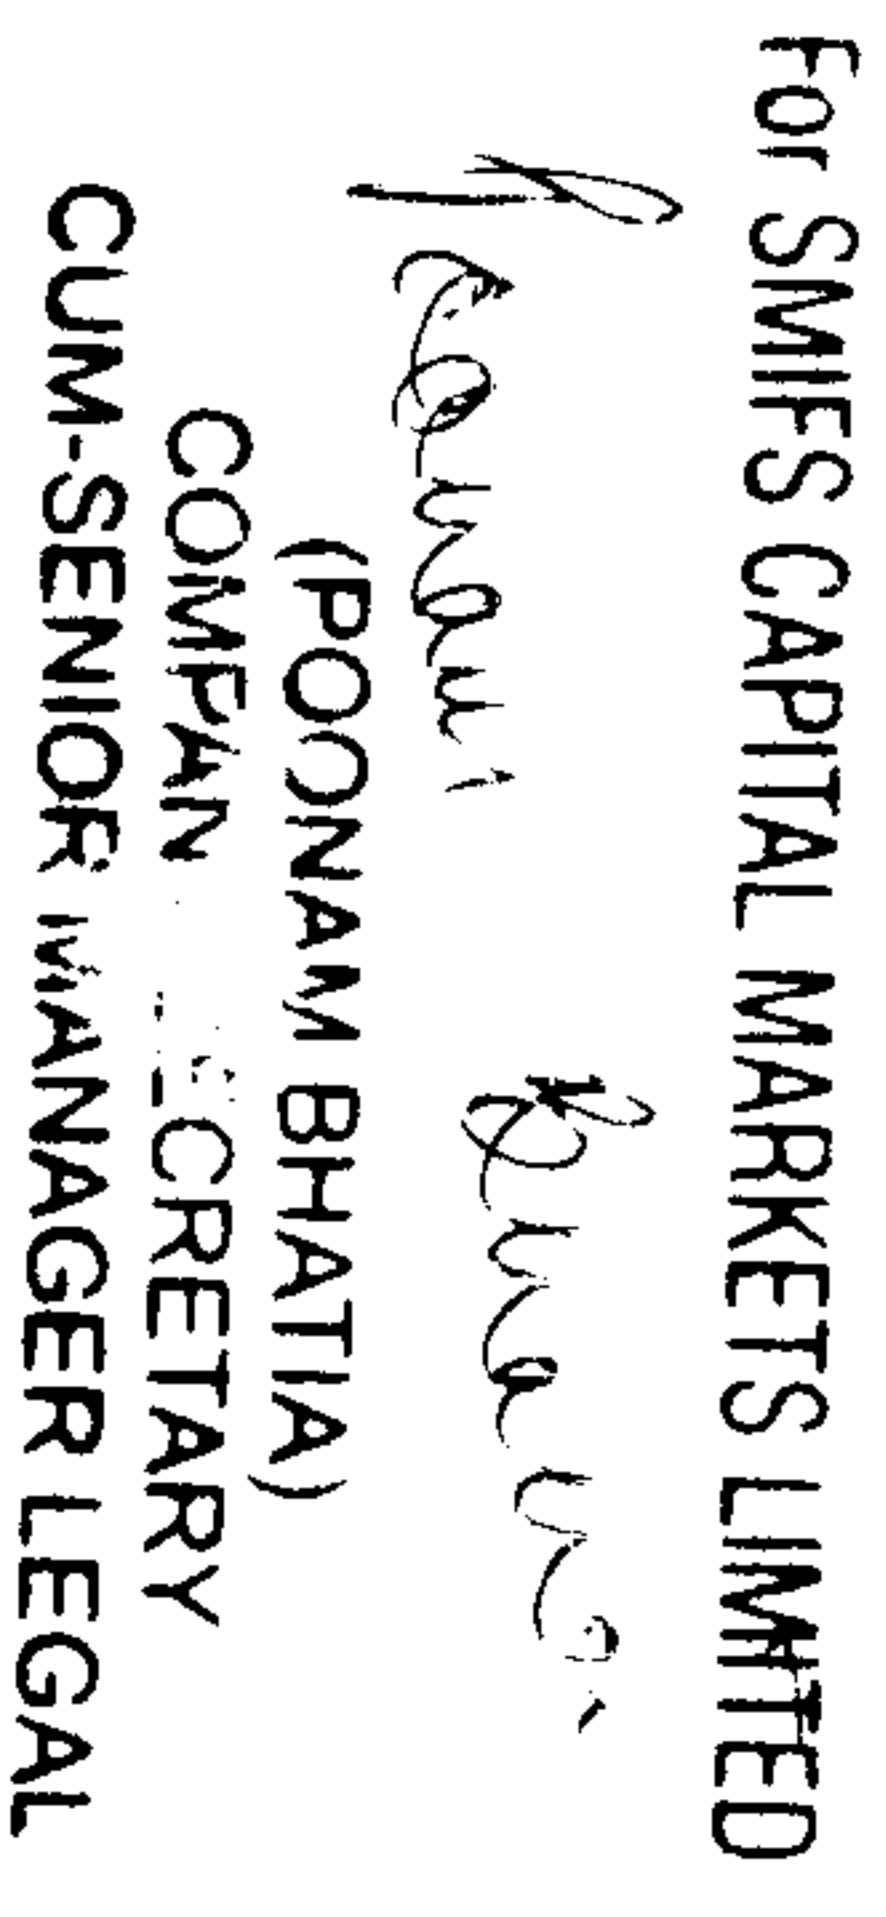 For SMIFS CAPITAL MARKETS LIMITED
(POONAM BHATIA)
COMPANY SECRETARY
CUM-SENIOR MANAGER LEGAL